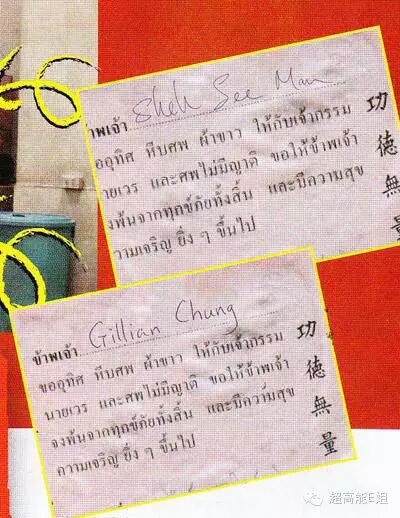 ข้าพเจ้า Sheh See Man
ขออุทิศ หีบศพ ผ้าขาว ให้กับเจ้ากรรม
ายเวร และศพไม่มีญาติ ขอให้ข้าพเจ้า
งพ้นจากทุกข์ภัยทั้งสิ้น และมีความสุข
วามเจริญ ยิ่ง ๆ ขึ้นไป
功德無量
ข้าพเจ้า Gillian Chung
ขออุทิศ หีบศพ ผ้าขาว ให้กับเจ้ากรรม
นายเวร และศพไม่มีญาติ ขอให้ข้าพเจ้า
จงพ้นจากทุกข์ภัยทั้งสิ้น และมีความสุข
ความเจริญ ยิ่ง ๆ ขึ้นไป
功德無量
超高能E姐